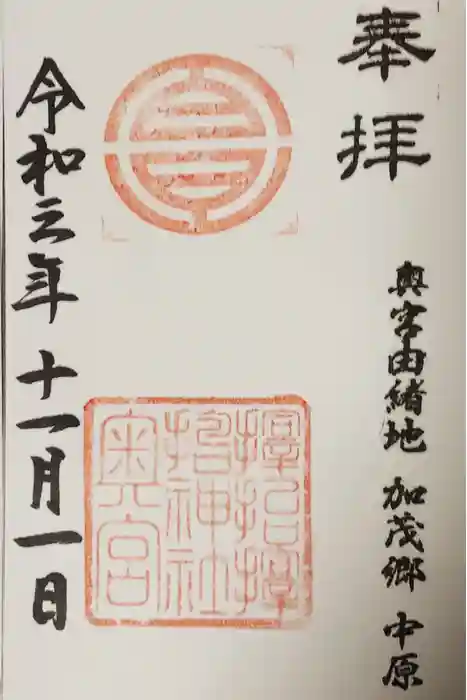 奉拝
奥宮由緒地 加茂郷 中原
神社
奥宮
令和三年 十一月一日